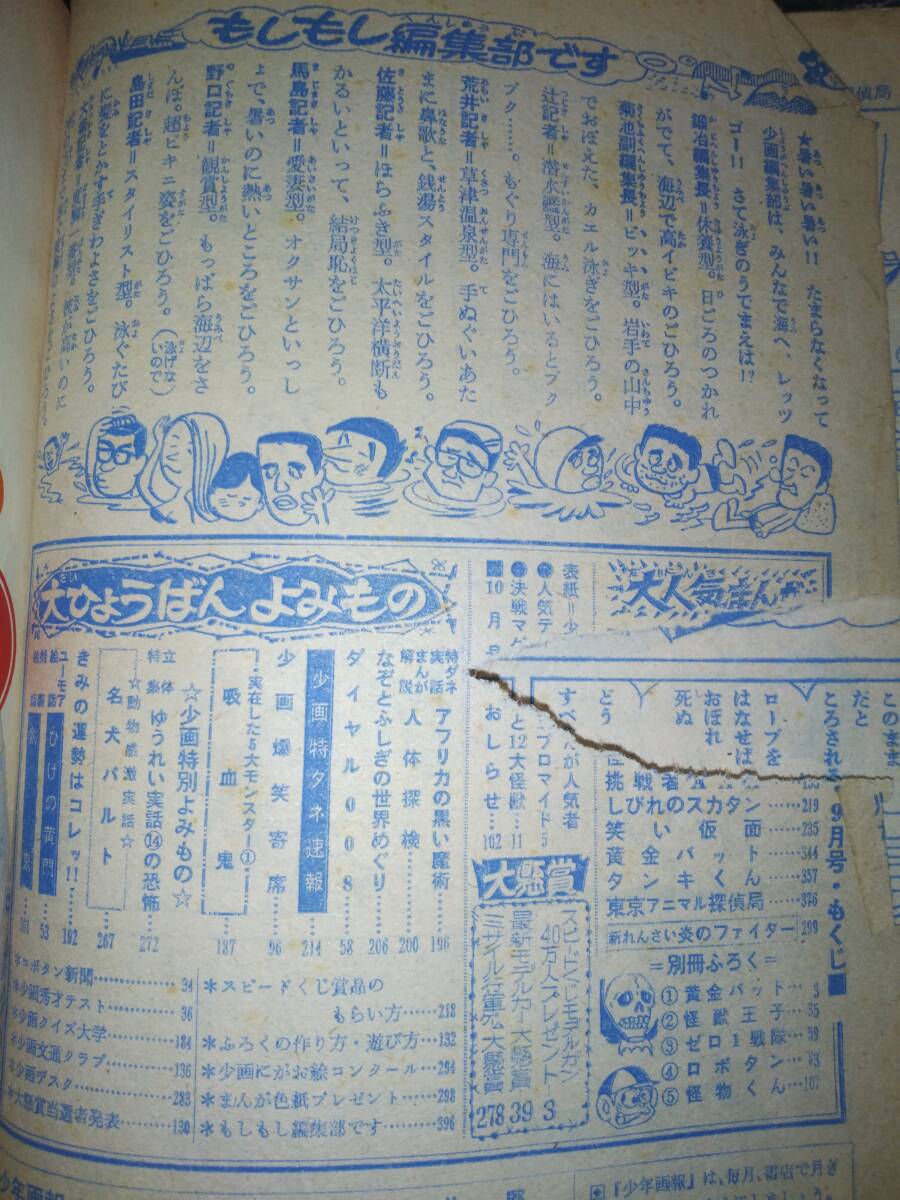 もしもし編集部です
★暑い暑い暑い!! たまらなくなって
少画編集部は、みんなで海へ、レッツ
ゴー!! さて泳ぎのうでまえは!?
鍛冶編集長=休養型。日ごろのつかれ
がでて、海辺で高イビキのごひろう。
菊池副編集長=ビッキ型。岩手の山中
でおぼえた、カエル泳ぎをごひろう。
辻記者=潜水艦型。海にはいるとブク
ブク……。もぐり専門をごひろう。
荒井記者=草津温泉型。手ぬぐいあた
まに鼻歌と、銭湯スタイルをごひろう。
佐藤記者=ほらふき型。太平洋横断も
かるいといって、結局恥をごひろう。
馬島記者=愛妻型。オクサンといっし
ょで、暑いのに熱いところをごひろう。
野口記者=観賞型。もっぱら海辺をさ
んぽ。超ビキニ姿をごひろう。(泳げないので)
島田記者=スタイリスト型。泳ぐたび
に髪をとかす手ぎわよさをごひろう。
探偵局
大人気まんが
このまま
だと
ころされる
ロープを
はなせば
おぼれ
死ぬ
どう
9月号・もくじ■
挑戦者
しびれのスカタン……219
笑い仮面……235
黄金バット……344
タンキくん……357
東京アニマル探偵局……376
新れんさい炎のファイター……299
=別冊ふろく=
①黄金バット……3
②怪獣王子……35
③ゼロ1戦隊……59
④ロボタン……83
⑤怪物くん……107
表紙=少
人気テ
すべ
が人気者
ブロマイド 5
決戦マ
と12大怪獣……11
10月号
おしらせ……102
大懸賞
スピードくじモデルガン
40万人プレゼント 3
最新モデルカー大懸賞 39
ミサイル行軍大懸賞 278
大ひょうばんよみもの
特ダネ実話 アフリカの黒い魔術……196
まんが解説 人体探検……200
なぞとふしぎの世界めぐり……206
ダイヤル008……58
少画特ダネ速報……214
少画爆笑寄席……96
実在した5大モンスター①
吸血鬼……187
☆少画特別よみもの☆
立体特集 ゆうれい実話⑭の恐怖……272
☆動物感激実話☆
名犬バルト……267
きみの運勢はコレッ!!……192
ユーモア絵話 ひげの黄門……53
*スピードくじ賞品の
もらい方……218
*ふろくの作り方・遊び方……132
*少画にがお絵コンクール……294
*まんが色紙プレゼント……298
*もしもし編集部です……396
*ロボタン新聞……34
*少画秀才テスト……36
*少画クイズ大学……184
*少画文通クラブ……136
*少画デスク……283
*大懸賞当選者発表……130
少年画報
『少年画報』は、毎月、書店で月ぎ